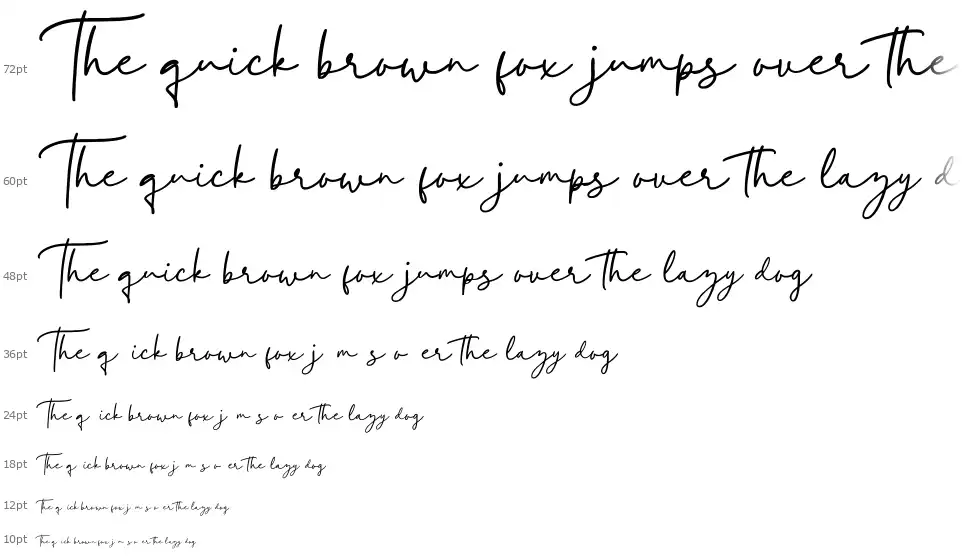 72pt The quick brown fox jumps over the
60pt The quick brown fox jumps over the lazy d
48pt The quick brown fox jumps over the lazy dog
36pt The q ick brown fox j m s o er the lazy dog
24pt The q ick brown fox j m s o er the lazy dog
18pt The q ick brown fox j m s o er the lazy dog
12pt The q ick brown fox j m s o er the lazy dog
10pt The q ick brown fox j m s o er the lazy dog